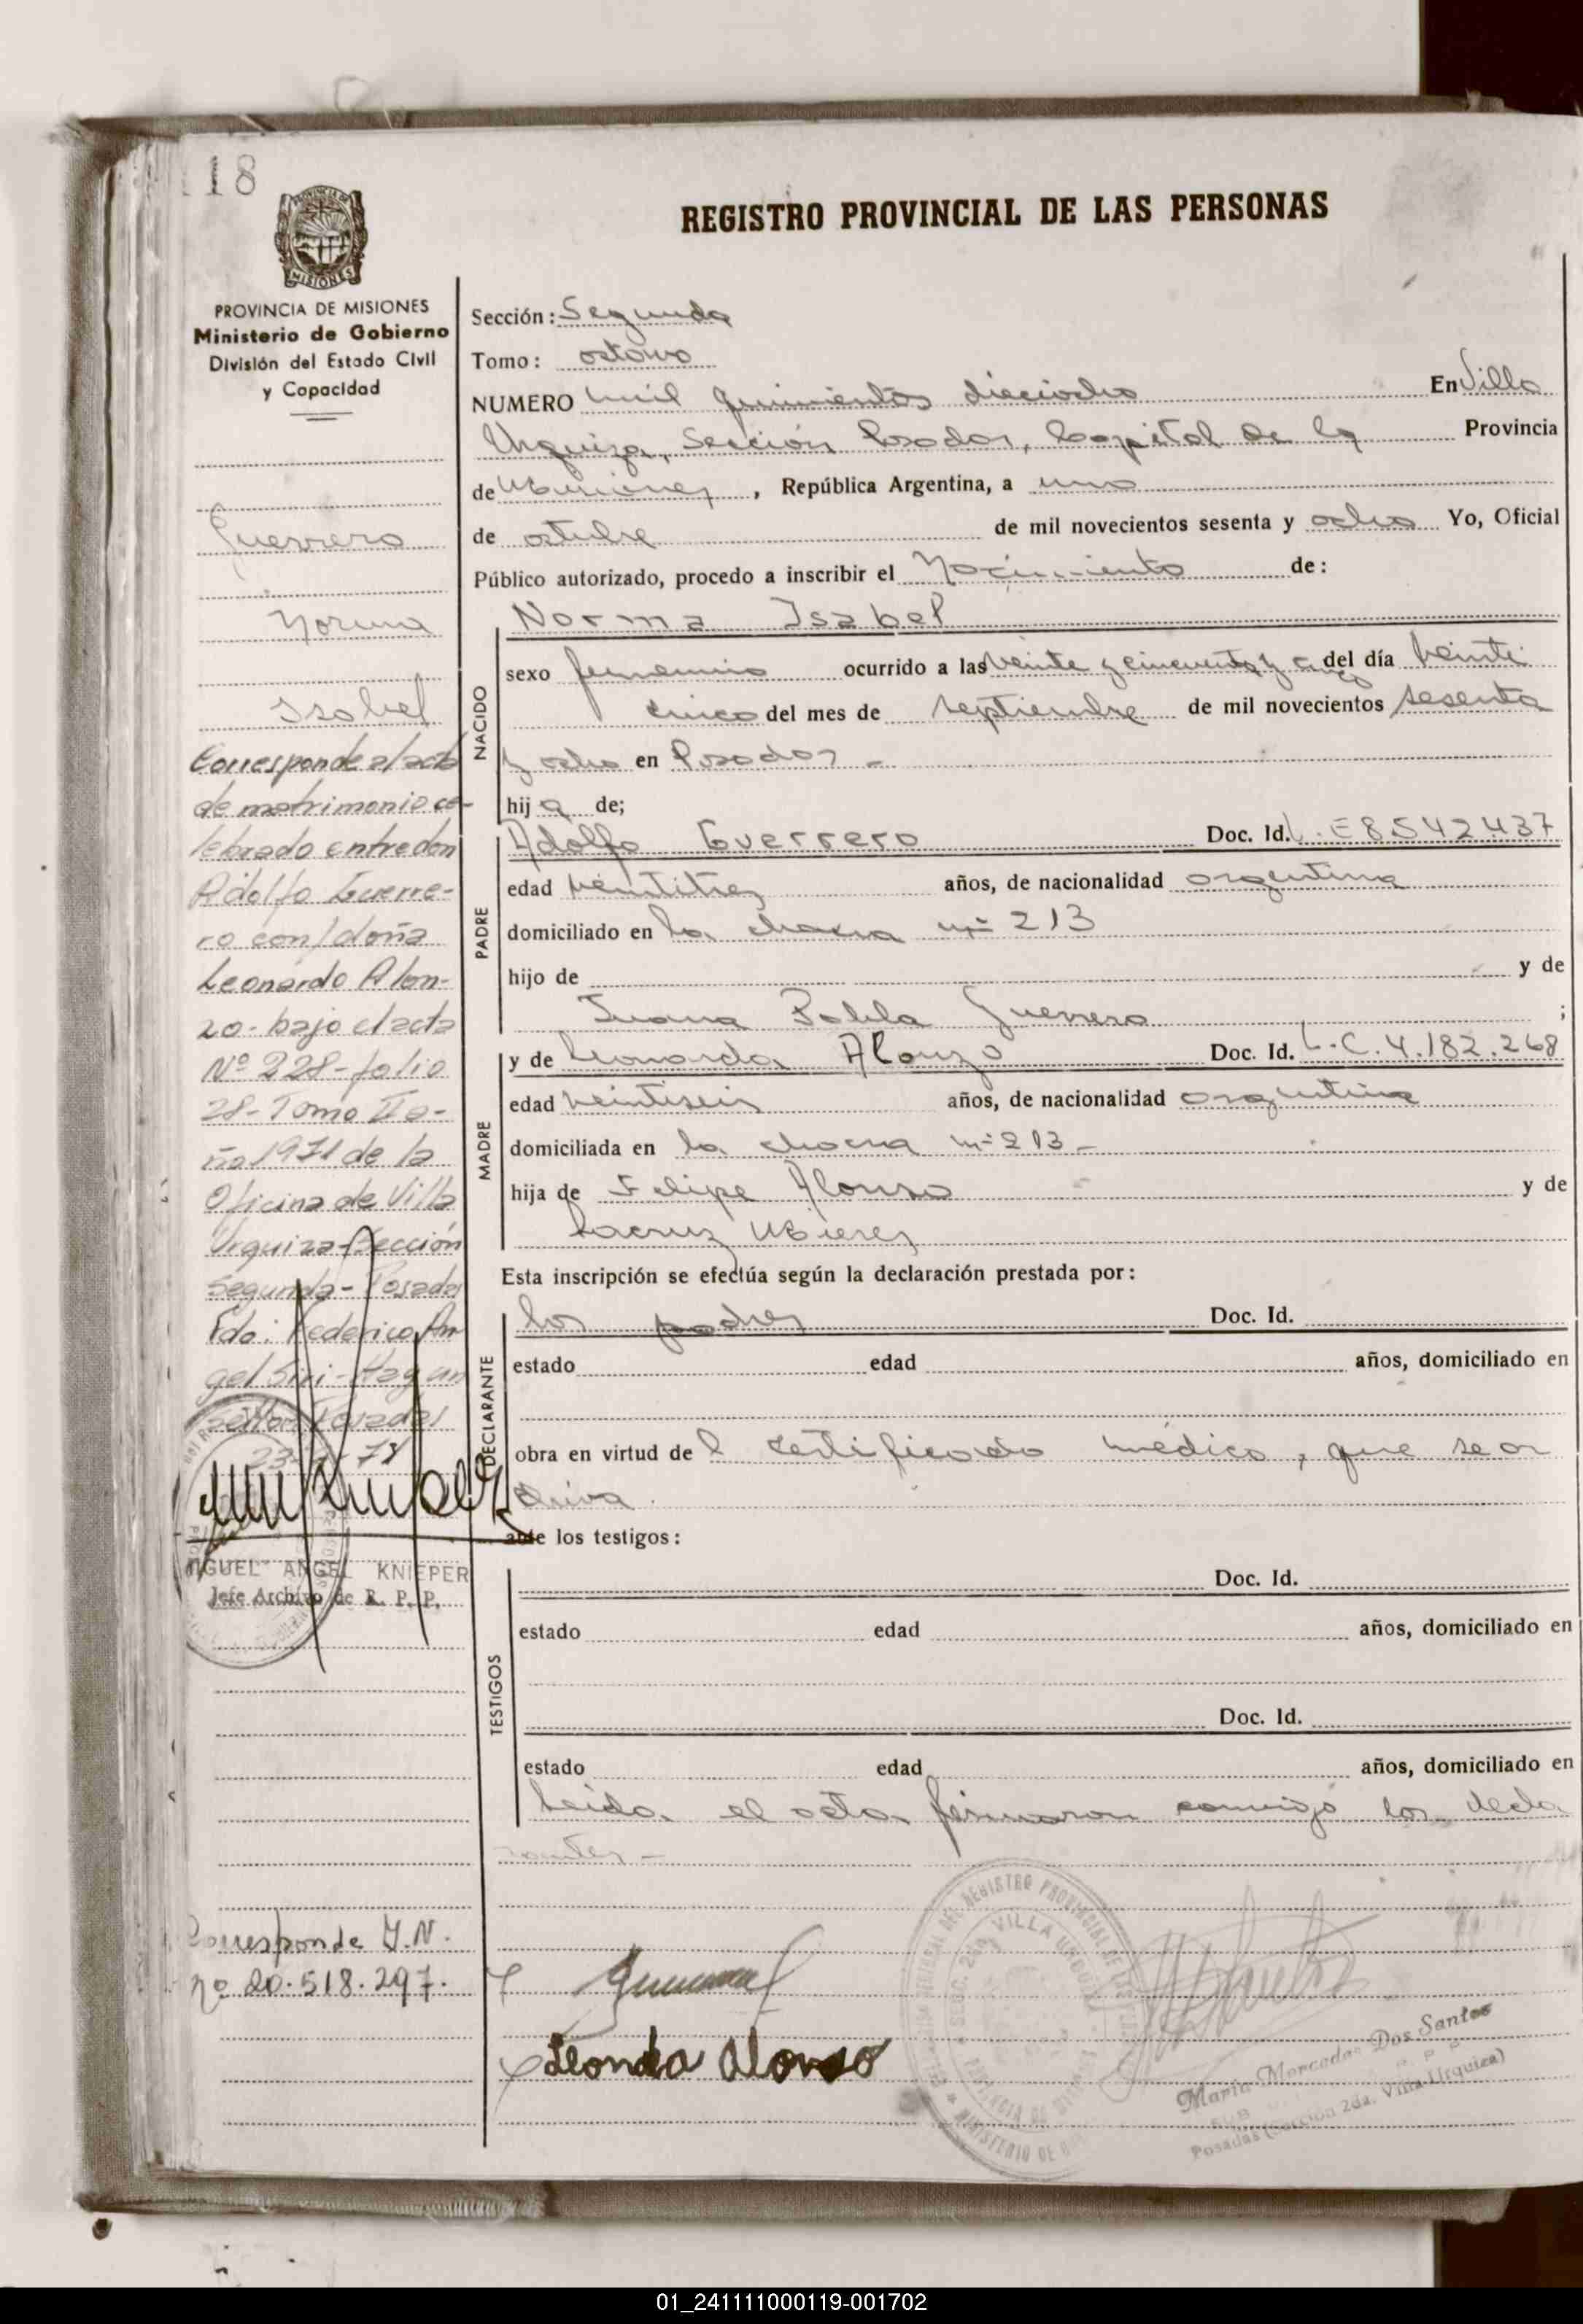 18
REGISTRO PROVINCIAL DE LAS PERSONAS
PROVINCIA DE MISIONES
Ministerio de Gobierno
División del Estado Civil
y Capacidad
Guerrero
Norma
Isabel
Corresponde al acta
de matrimonio ce-
lebrado entre don
Adolfo Guerre-
ro con/doña
Leonardo Alon-
zo- bajo el acta
Nº 228- folio
28- Tomo II a-
ño 1971 de la
Oficina de Villa
Urquiza-Sección
Segunda- Posadas
Fdo: Federico An
gel Siri-
Posadas
MIGUEL ANGEL KNIEPER
Jefe Archivo de R. P. P.
Corresponde I.N.
nº 20.518.297.
Sección: Segunda
Tomo: octavo
NUMERO mil quinientos dieciocho En Villa
Urquiza, Sección Posadas, Capital de la Provincia
de Misiones, República Argentina, a uno
de octubre de mil novecientos sesenta y ocho Yo, Oficial
Público autorizado, procedo a inscribir el Nacimiento de:
Norma Isabel
NACIDO
sexo femenino ocurrido a las veinte y cincuenta y cinco del día veinti
cinco del mes de septiembre de mil novecientos sesenta
y ocho en Posadas -
hij a de;
PADRE
Adolfo Guerrero Doc. Id. L.E 8.542437
edad veintitres años, de nacionalidad argentina
domiciliado en la chacra nº 213
hijo de y de
Juana Pabla Guerrero ;
MADRE
y de Leonarda Alonzo Doc. Id. L.C.4.182.268
edad veintiseis años, de nacionalidad argentina
domiciliada en la chacra nº 213-
hija de Felipe Alonso y de
Lacruz Mieres
Esta inscripción se efectúa según la declaración prestada por:
DECLARANTE
los padres Doc. Id.
estado edad años, domiciliado en
obra en virtud de l certificado médico, que se ar
chiva.
ante los testigos:
TESTIGOS
Doc. Id.
estado edad años, domiciliado en
Doc. Id.
estado edad años, domiciliado en
Leida el acta firmaron conmigo los decla
rantes -
Leonda Alonso
VILLA URQUIZA
María Mercedes Dos Santos
Posadas (Sección 2da. Villa Urquiza)
01_241111000119-001702